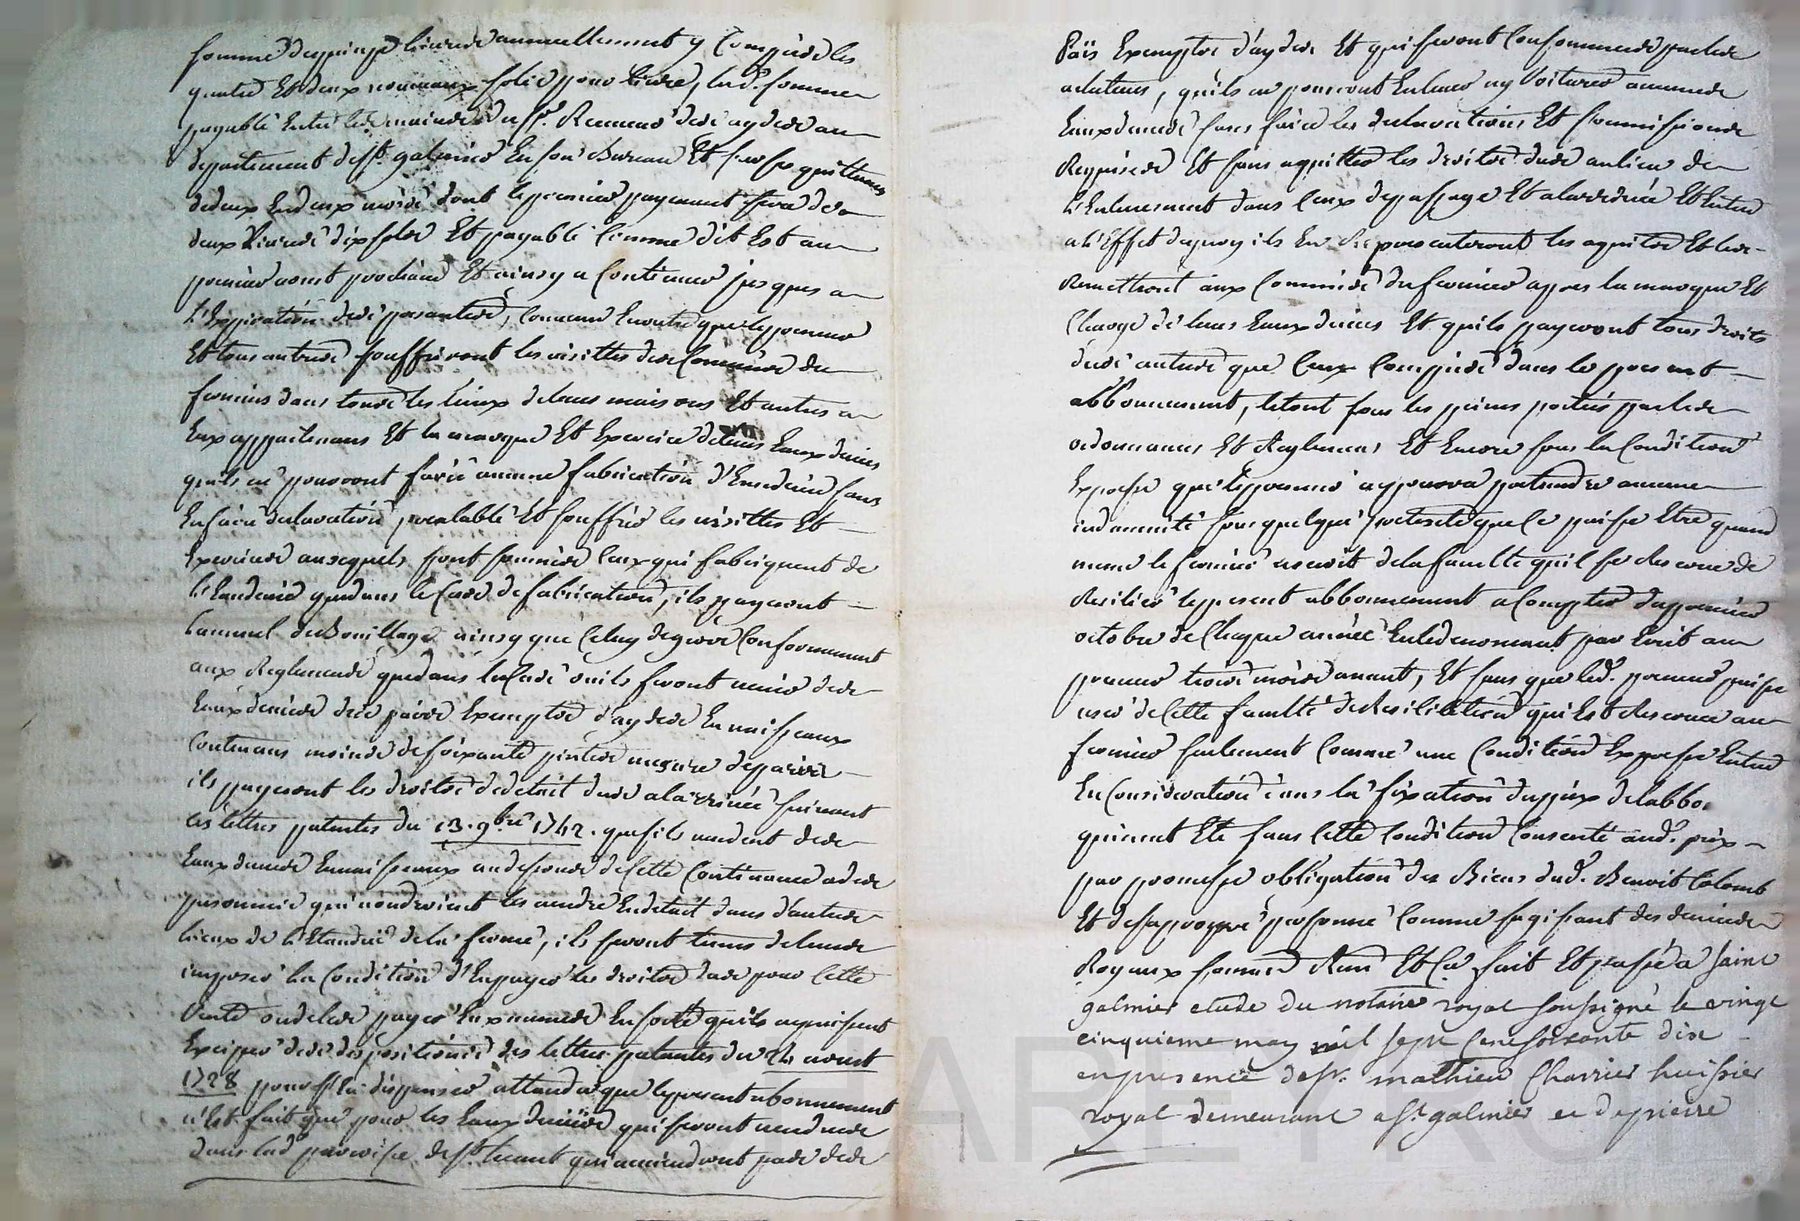 somme de quinze livres annuellement y compris les
quatre et deux nouveaux sols pour livre, lad. somme
payable entre les mains du sr. Receveur des aydes au
departement de st. galmier en son Bureau et sur ses quittances
de deux en deux mois dont le premier payement sera de
deux livres dix sols et payable comme dit est au
premier aoust prochain et ainsy a continuer jusques a
l'expiration des presentes, convenu en outre que le preneur
et tous autres souffriront les visittes des commis du
fermier dans tous les lieux de leurs maisons et autres a
eux appartenans et la marque et exercice de leurs eaux de vies
quils ne pourront faire aucune fabrication d'eau de vie sans
en faire declaration prealable et souffrir les visittes et
exercices ausquels sont soumis ceux qui fabriquent de
l'eau de vie que dans le cas de fabrication, ils payeront
l'annuel de Bouillage ainsy que celuy de gros conformement
aux Reglements que dans le cas ou ils feront venir des
eaux de vies des païs exemptes d'aydes en vaisseaux
contenans moins de soixante pintes mezure de paris
ils payeront les droits de detail dus a l'arrivée suivant
les lettres patentes du 13. 9bre 1742. que s'ils vendent des
eaux de vies en vaisseaux au dessous de cette continence a des
personnes qui voudroient les vendre en detail dans d'autres
lieux de l'etendue de la ferme, ils seront tenus de leurs
imposer la condition d'en payer les droits dus pour cette
vente ou de les payer eux memes en sorte quils ne puissent
exciper des dispositions des lettres patentes du 24 aoust
1728 pour s'en dispenser attendu que le present abonnement
n'est fait que pour les eaux de vies qui seront vendues
dans lad. parroisse de st. qui viendront pas des
Païs exemptes d'aydes et qui seront consommées par les
acheteurs, qu'ils ne pourront enlever ny voiturer aucunes
eaux de vies sans faire les declarations et soumissions
Requises et sans aquitter les droits dus au lieu de
l'enlevement dans ceux de passage et a l'arrivée et
a l'effet de quoy ils en Representeront les aquits et les
Remettront aux commis du fermier apres la marque et
charge de leurs eaux de vies et quils payeront tous droits
dus autres que ceux compris dans le present
abbonnement, le tout sous les peines portées par les
ordonnances et Reglemens et encore sous la condition
expresse que le preneur ne pourra pretendre aucune
indamnité sous quelque pretexte que ce puisse etre quand
meme le fermier useroit de la faculté qu'il se Reserve de
Resilier le present abbonnement a compter du premier
octobre de chaque année en le denonceant par ecrit au
preneur trois mois avant, et sans que led. preneur puisse
user de cette faculté de Resiliation qui est Reservée au
fermier seulement comme une condition expresse
en consideration dans la fixation du prix de l'abbo.
qui n'eut eté sans cette condition consenti aud. prix
par promesse obligation des Biens dud. Benoit Colomb
et de sa propre personne comme s'agissant des deniers
Royaux soumis Renon et ca fait et passé a Saint
galmier etude du notaire royal soussigné le vingt
cinquieme may mil sept cent soixante dix
en presence de sr. mathieu Charrier huissier
royal demeurant a st. galmier et de pierre